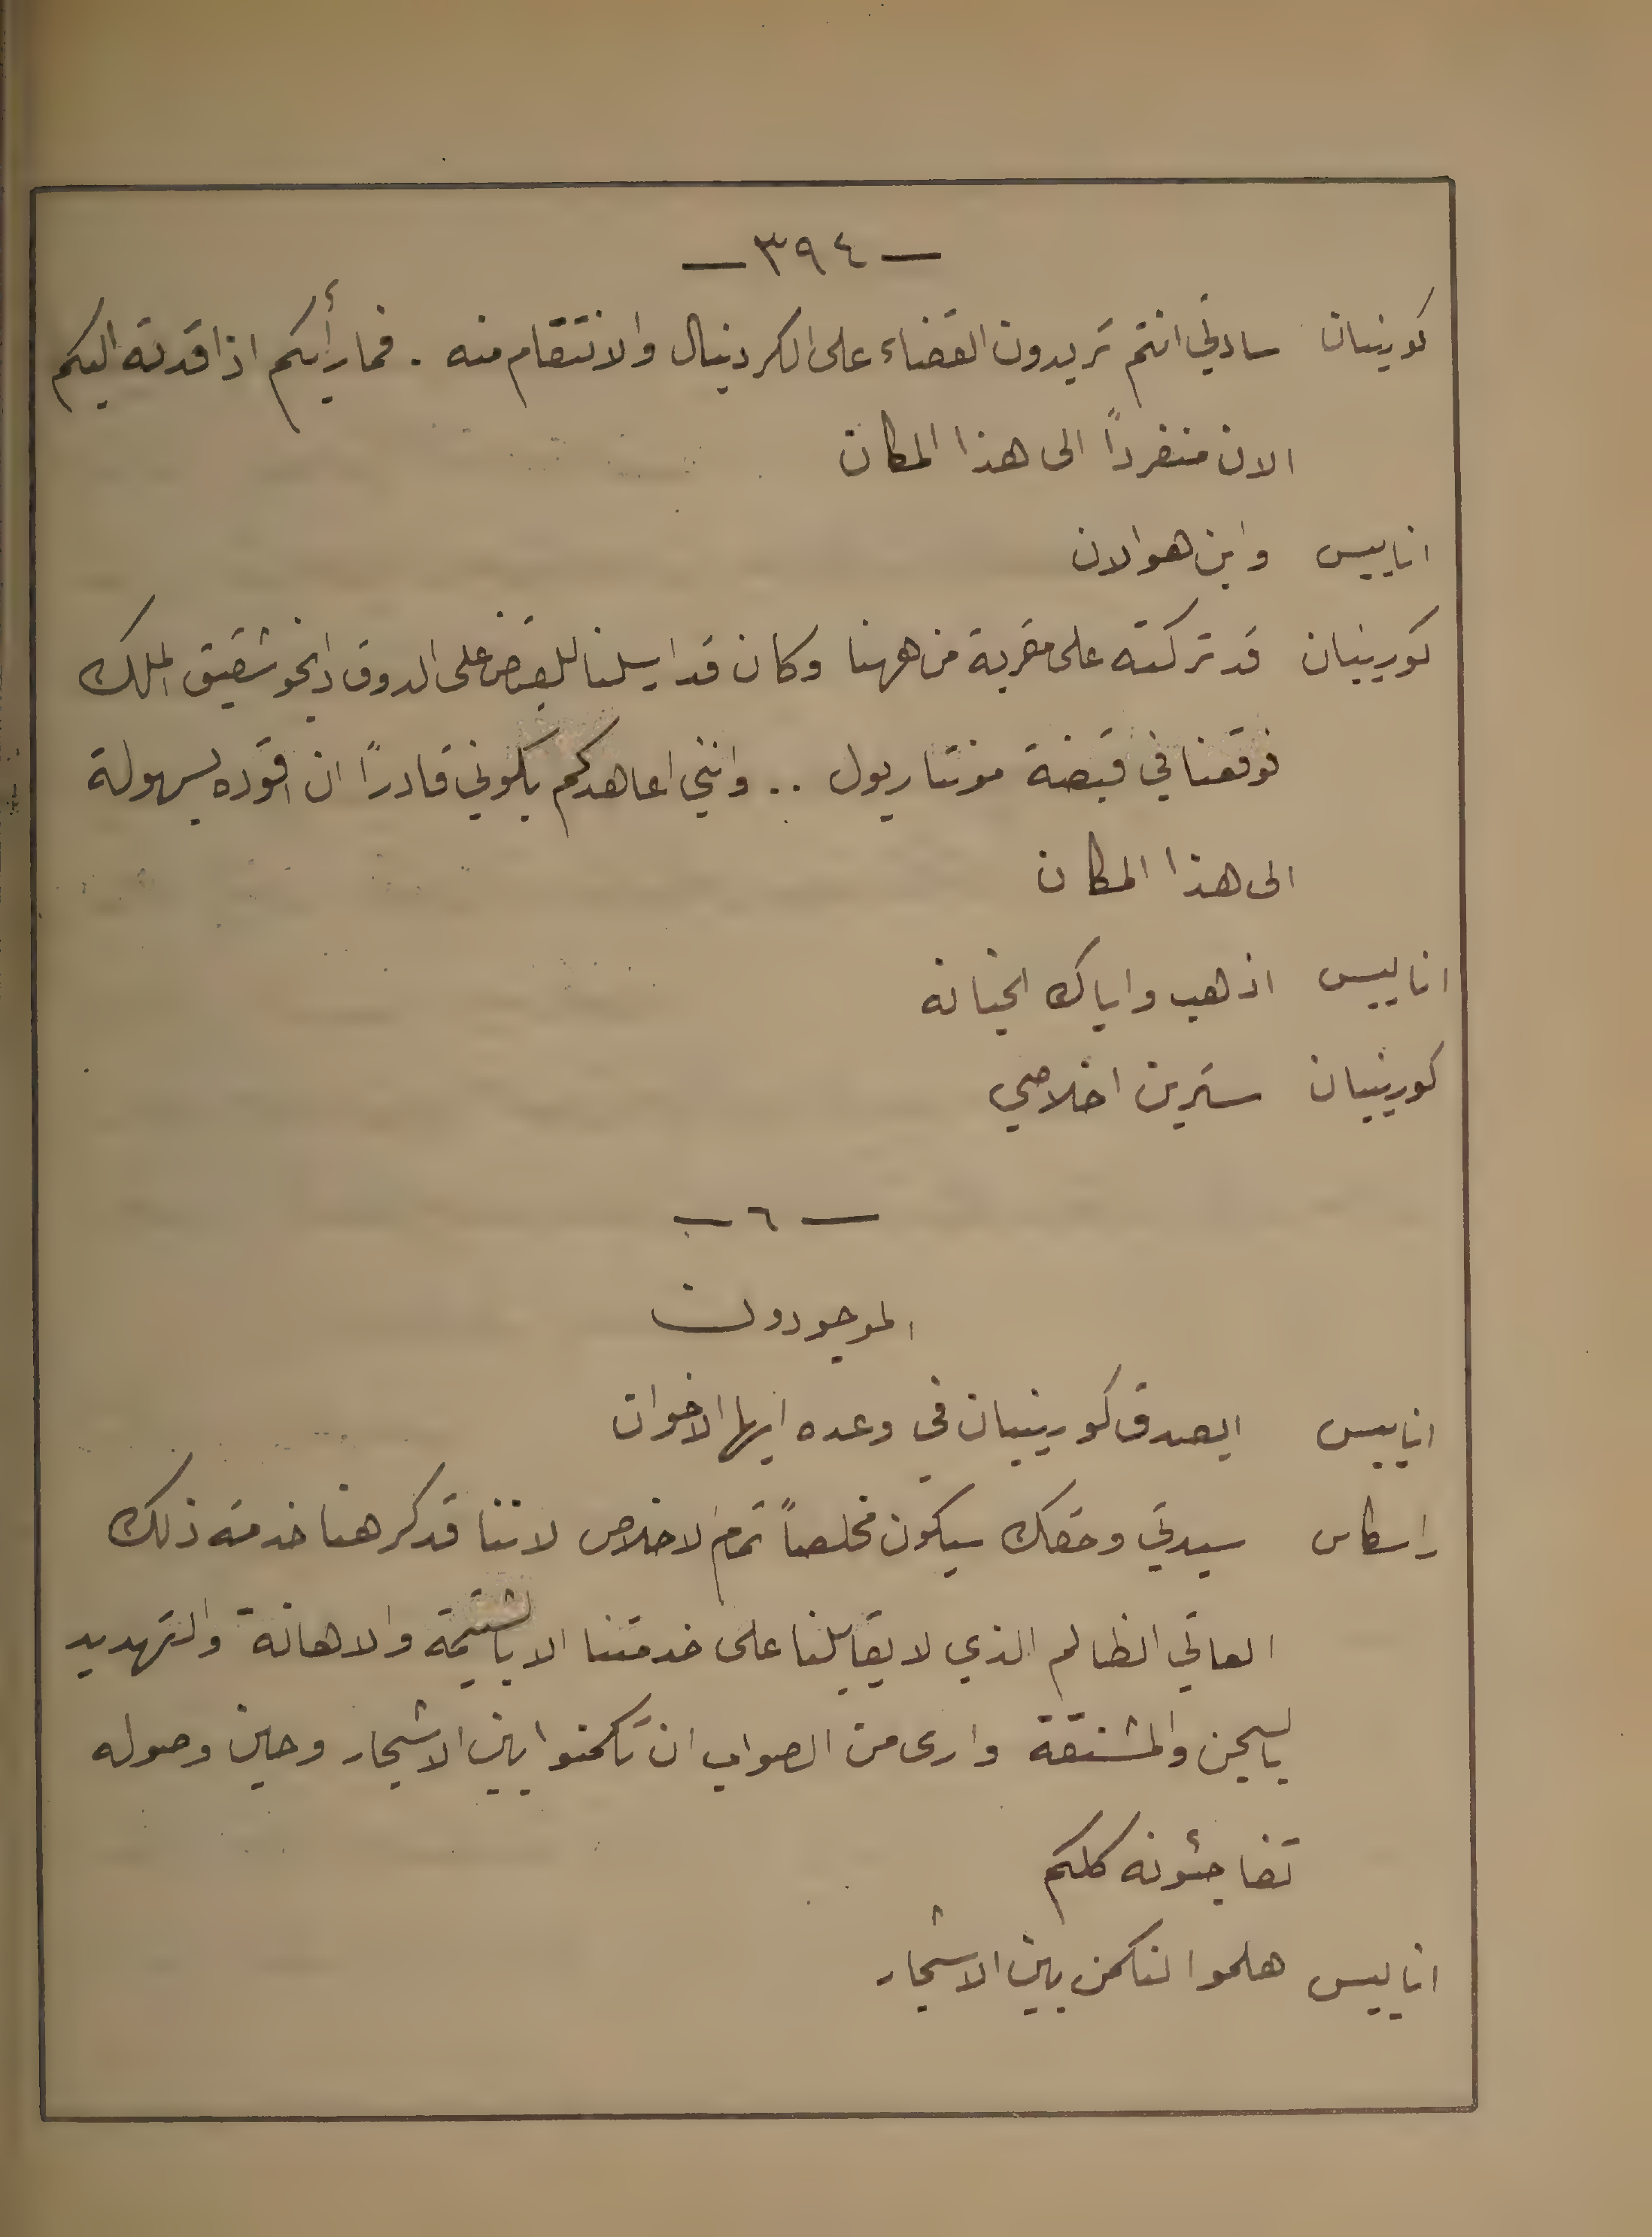 — ٣٩٤ —
كورينيان سادتي انتم تريدون القضاء على الكردينال والانتقام منه . فما رأيكم اذا قدته اليكم
الان منفرداً الى هذا المكان
اناييس واين هو الان
كورينيان قد تركته على مقربة من ههنا وكان قد ارسلنا للقبض على الدوق دانجو شقيق الملك
فوقعنا في قبضة مونتاريول .. وانني اعاهدكم بكوني قادراً ان اقوده بسهولة
الى هذا المكان
اناييس اذهب واياك الخيانة
كورينيان سترين اخلاصي
— ٦ —
الموجودون
اناييس ايصدق كورينيان في وعده ايها الاخوان
راسكاس سيدتي وحقك سيكون مخلصاً تمام الاخلاص لاننا قد كرهنا خدمة ذلك
العاتي الظالم الذي لا يقابلنا على خدمتنا الا بالشتيمة والاهانة والتهديد
بالسجن والمشنقة وارى من الصواب ان تكمنوا بين الاشجار وحين وصوله
تفاجئونه كلكم
اناييس هلموا لنكمن بين الاشجار